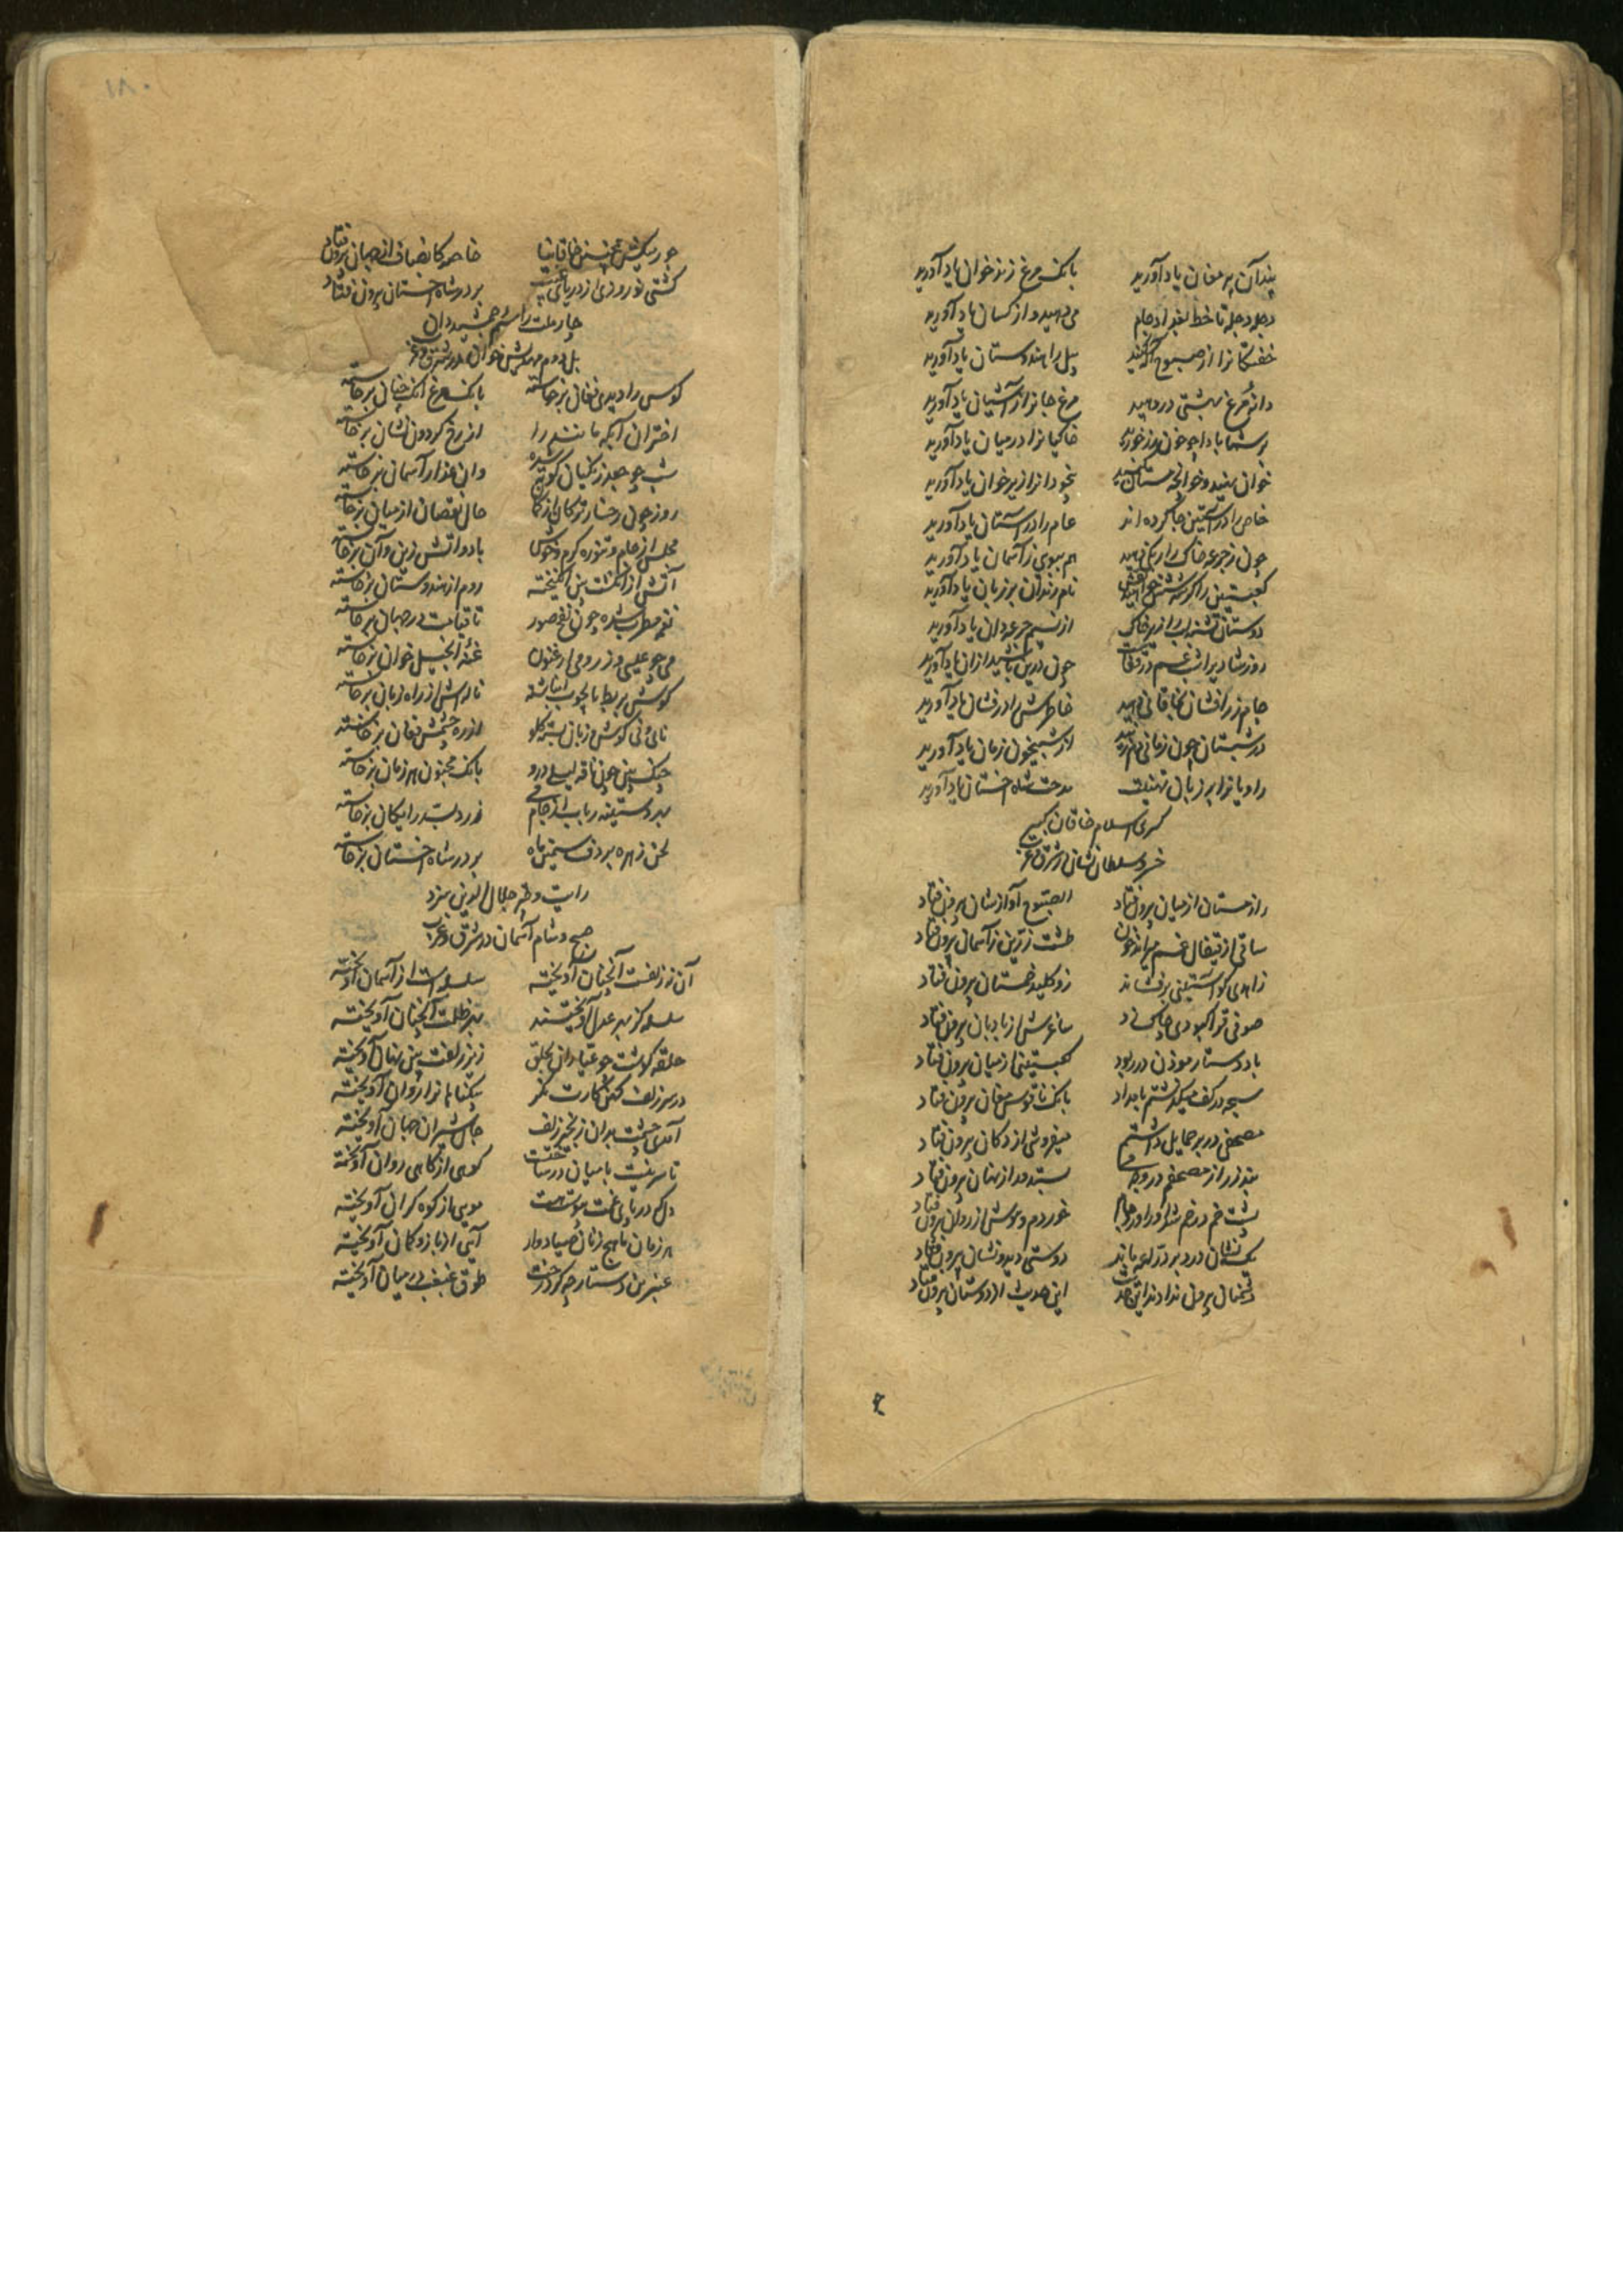 پند آن پیر مغان یاد آورید بانک مرغ زند خوان یاد آورید
دجله دجله تا خط بغداد جام می دهید و از کسان یاد آورید
خفتکانرا از صبوح آکه کنید پیل را هندوستان یاد آورید
دانه مرغ بهشتی در دهید مرغ جانرا از آشیان یاد آورید
بر شما بادا چو خون رز خورید خاکیانرا در میان یاد آورید
خوان نهید و خوانچه مستان کنید بخودانرا زیر خوان یاد آورید
خاص را در آستین جا کرده اند عام را در آستان یاد آورید
چون ز جرعه خاک را رنکی دهید هم ببوی ز آسمان یاد آورید
کعبتین را کر سه شش خواهید نقش نام رندان بر زبان یاد آورید
دوستان تشنه لب را زیر خاک از نسیم جرعه دان یاد آورید
روز شادیرا شب غم در قفاست چون درین باشید ازان یاد آورید
جام زر افشان بخاقانی دهید خاطرش را درفشان یاد آورید
در شبستان چون زمانی خوش بوید از شبیخون زمان یاد آورید
راویانرا بر زبان تهنیت مدحت شاه اخستان یاد آورید
کسری اسلام خاقان کبیر
خسرو سلطان نشان در شرق و غرب
راز مستان از میان بیرون فتاد الصبوح آواز شان بیرون فتاد
ساقی از قیفال خم میراند خون طشت زرین ز آسمان بیرون فتاد
زاهدی کو آستینی بر فشاند زو کلید خمستان بیرون فتاد
صوفی تراکبودی چاک زد ساغرش از بادبان بیرون فتاد
باد دستار موذن در ربود کعبتینی از میان بیرون فتاد
سبحه در کف میکذشتم بامداد بانک ناقوس مغان بیرون فتاد
مصحفی در بر حمایل داشتم میفروشی از دکان بیرون فتاد
بند زر از مصحفم در وجه می بستد و راز نهان بیرون فتاد
پشت خم در خم شدم خوردم و هوش از روان بیرون فتاد
یک نشان درد بر دراعه ماند دوستی دید و نشان بیرون فتاد
دشمنان بیرون ندادند این حدیث این حدیث از دوستان بیرون فتاد
جور میکش همچنین خاقانیا خاصه کانصاف از جهان بیرون فتاد
کشتی نوروزی از دریای غیب بر در شاه اخستان بیرون فتاد
چار ملت را سوم جمشید دان
بل دوم مهدیش خوان در شرق و غرب
کوس را دیدی فغان برخاسته بانک مرغ آنک چنان برخاسته
اختران آبله مانند را از رخ کردون نشان برخاسته
شب چو جعد زنکیان کوته شده وان عذار آسمان برخاسته
روز چون رخسار ترکان از کمال خال نقصان از میان برخاسته
مجلس از جام و تنوره کرم و خوش باد و آتش زین و آن برخاسته
آتش از انکشت بین انکیخته روم از هندوستان برخاسته
نغمه مطرب شده چون نفخ صور تا قیامت در جهان برخاسته
می چو عیسی و ز رومی ارغنون غنه انجیل خوان برخاسته
کوش بربط تا بچوب انباشته ناله اش از راه زبان برخاسته
نای بی کوش و زبان بسته کلو از ره چشمش فغان برخاسته
چنک بین چون ناقه لیلی درو بانک مجنون هر زمان برخاسته
بهر دستینه رباب از جام می زر دست رایکان برخاسته
لحن زهره بر دف سیمین ماه بر در شاه اخستان برخاسته
رایت و چتر جلال الدین سزد
صبح و شام آسمان در شرق و غرب
آن زر زلفت آنچنان آویخته سلسله است از آسمان آویخته
سلسله کز بهر عدل آویختند بهر ظلمت آنچنان آویخته
حلقه کوشت چو عیاران بحلق زیر زلفت بین نهان آویخته
در سر زلف کنه کارت نکر بیکناهانرا روان آویخته
آهوی چشمت بدان زنجیر زلف جان شیران جهان آویخته
تا سرینت با میان در ساخته است کوهی از کاهی روان آویخته
دل در پای غمت موییست موی از کوه کران آویخته
هر زمان یاسج زنان صیاد وار آیی از بازو کمان آویخته
عنبرین دستارچه کرد رخت طوق غبغب در میان آویخته